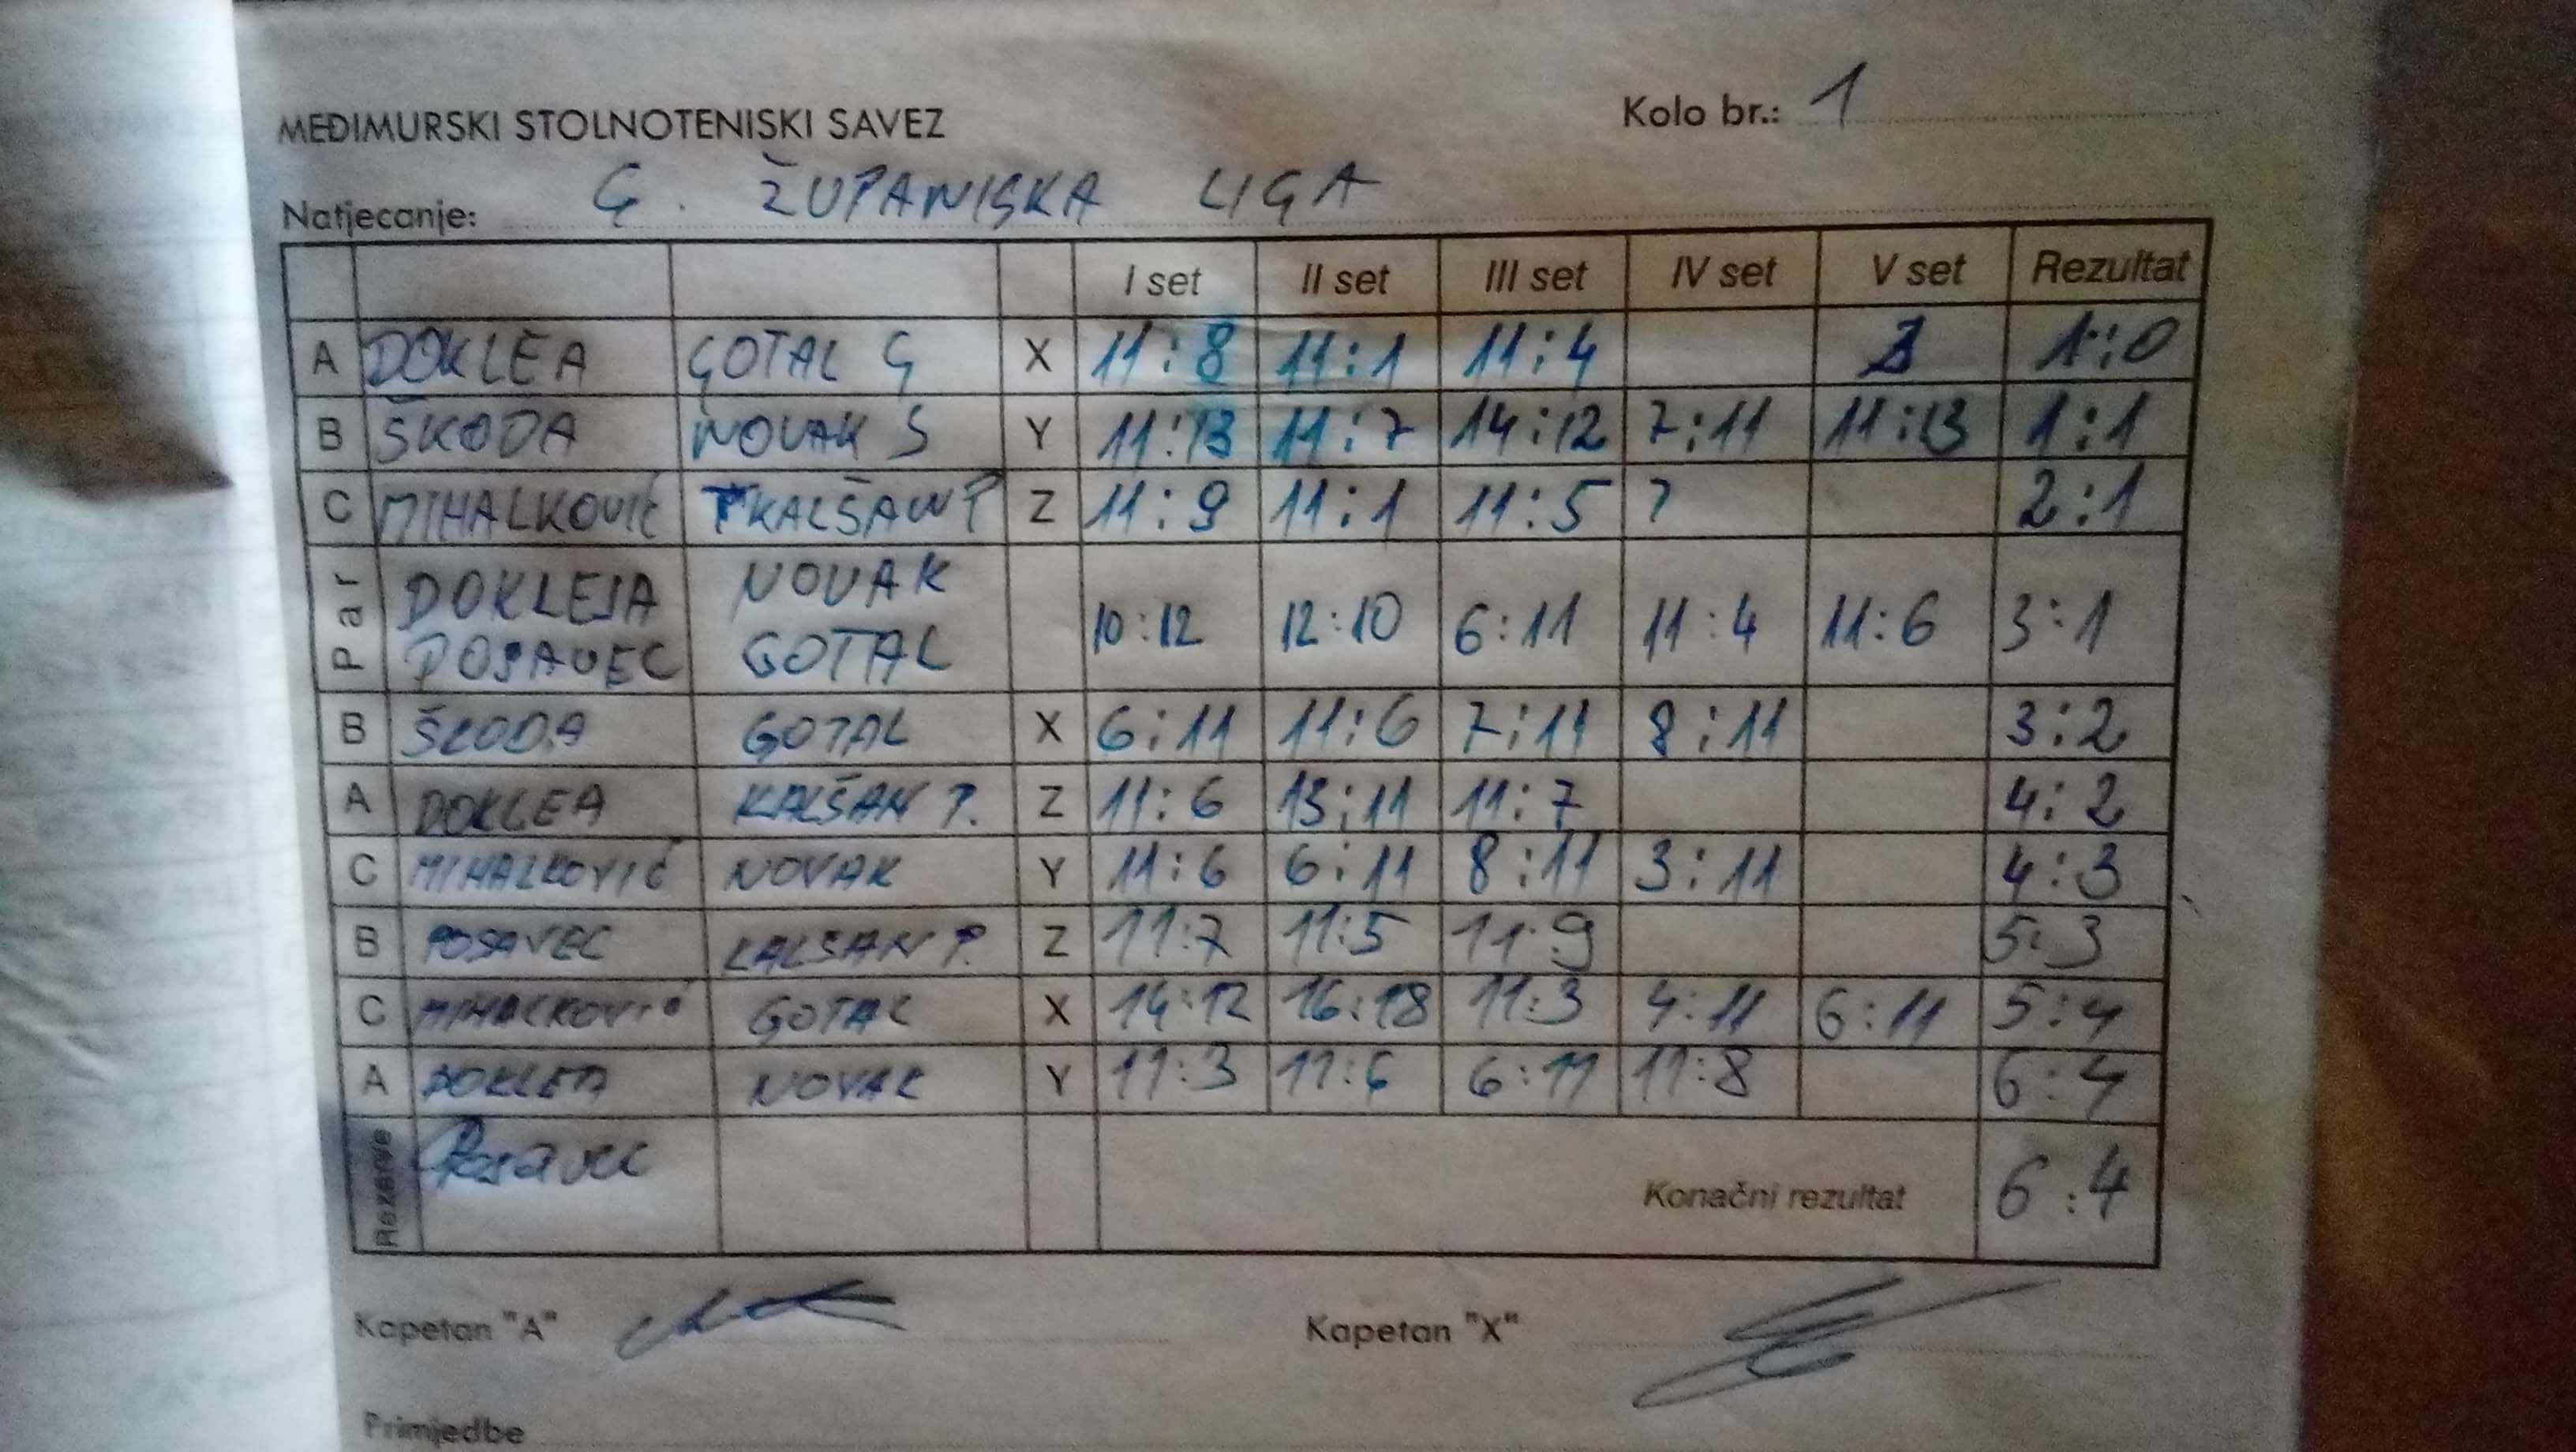 MEĐIMURSKI STOLNOTENISKI SAVEZ
Kolo br.: 1
Natjecanje: G. ŽUPANIJSKA LIGA
I set II set III set IV set V set Rezultat
A DOKLEA GOTAL G X 11:8 11:1 11:4 1:0
B ŠKODA NOVAK S Y 11:13 11:7 14:12 7:11 11:13 1:1
C MIHALKOVIĆ KALŠAN P Z 11:9 11:1 11:5 7 2:1
Par DOKLEJA NOVAK
POSAVEC GOTAL
10:12 12:10 6:11 11:4 11:6 3:1
B ŠKODA GOTAL X 6:11 11:6 7:11 8:11 3:2
A DOKLEA KALŠAN P. Z 11:6 13:11 11:7 4:2
C MIHALKOVIĆ NOVAK Y 11:6 6:11 8:11 3:11 4:3
B POSAVEC KALŠAN P. Z 11:7 11:5 11:9 5:3
C MIHALKOVIĆ GOTAL X 14:12 16:18 11:3 4:11 6:11 5:4
A DOKLEA NOVAK Y 11:3 11:6 6:11 11:8 6:4
Rezerve Posavec
Konačni rezultat 6:4
Kapetan "A"
Kapetan "X"
Primjedbe